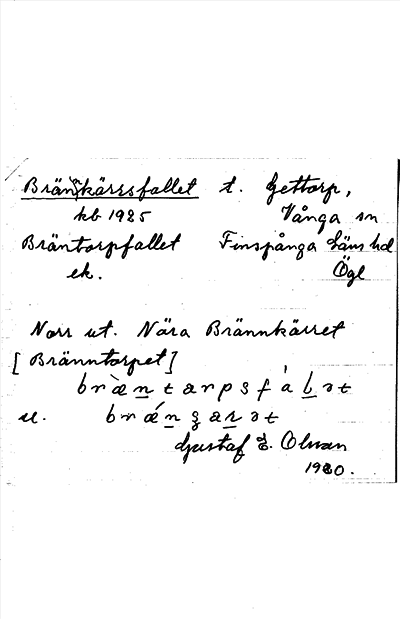 Brännkärrsfallet t. Gettorp,
kb 1925 Vånga sn
Bräntorpfallet Finspånga läns hd
ek. Ögl
Norr ut. Nära Brännkärret
[Bränntorpet]
bræ̀n̲tarpsfàl̲ət
u.
Gustaf E. Olsson